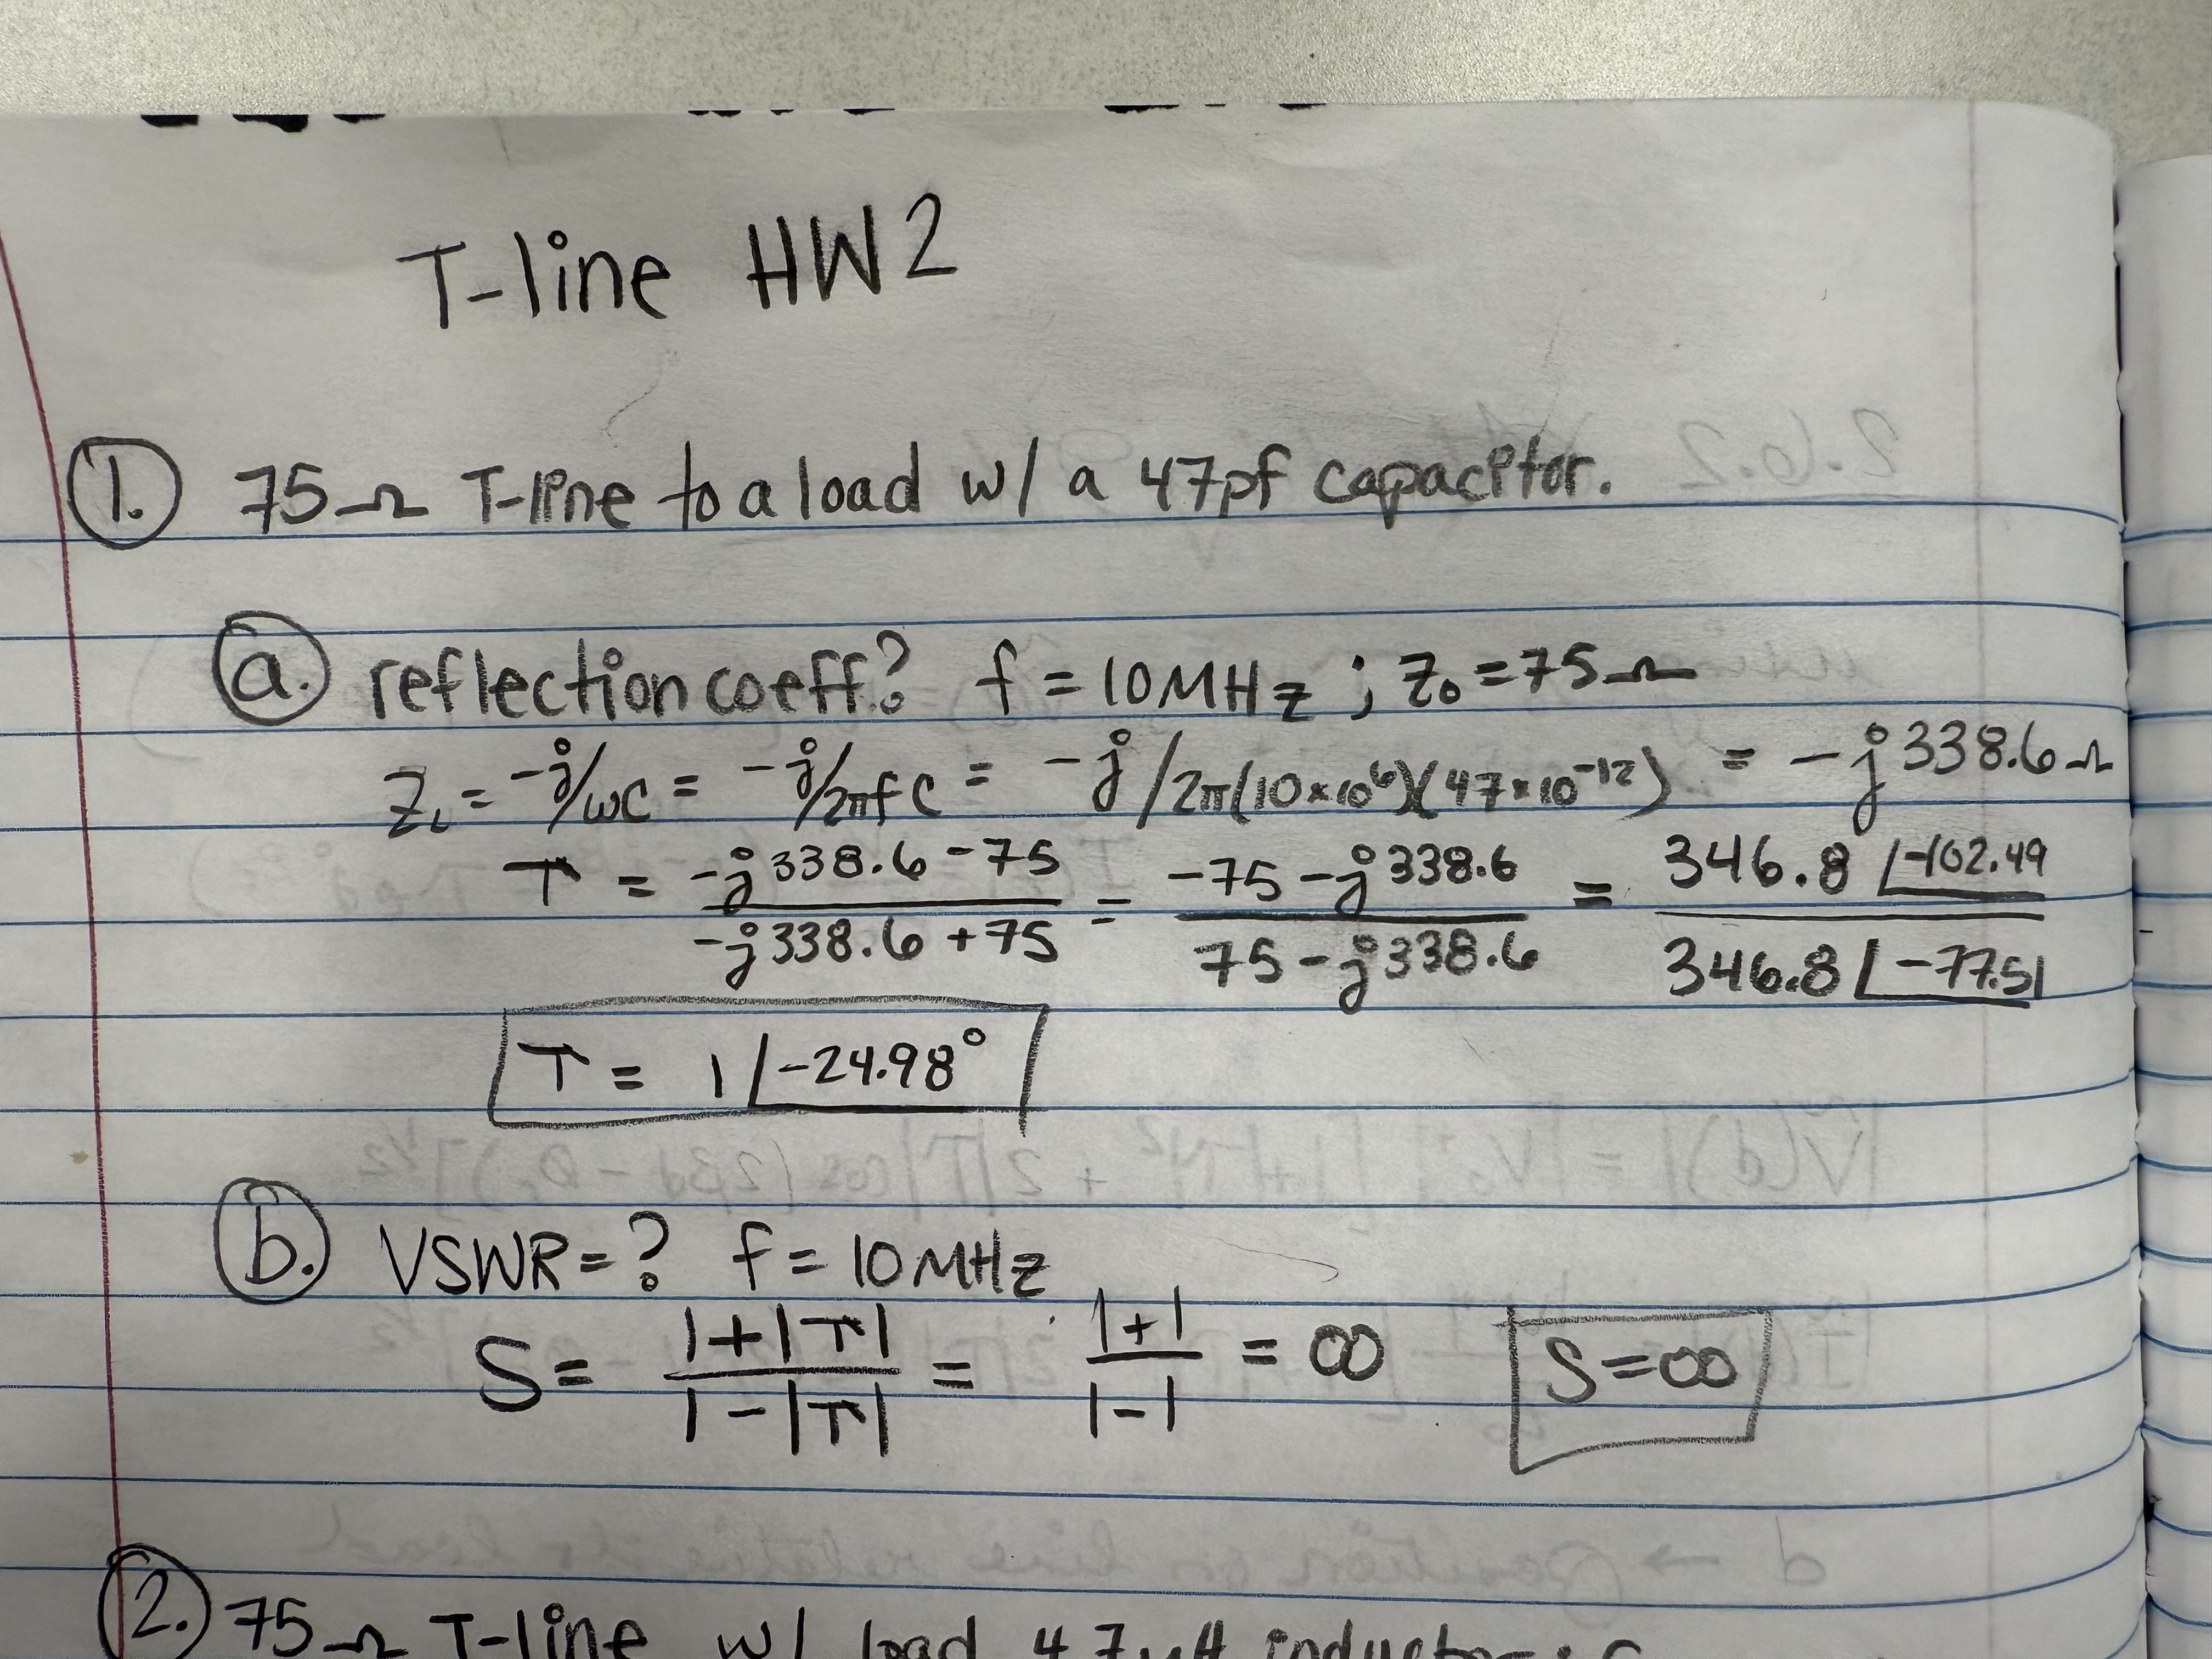 T-line HW2
1. 75Ω T-line to a load w/ a 47pf capacitor.
a. reflection coeff? f = 10MHz ; Z₀ = 75Ω
Z_L = -j/ωC = -j/2πfC = -j/2π(10×10⁶)(47×10⁻¹²) = -j338.6Ω
Γ = (-j338.6 - 75)/(-j338.6 + 75) = (-75 - j338.6)/(75 - j338.6) = (346.8∠-102.49)/(346.8∠-77.51)
Γ = 1∠-24.98°
b. VSWR = ? f = 10MHz
S = (1+|Γ|)/(1-|Γ|) = (1+1)/(1-1) = ∞ S=∞
2. 75Ω T-line w/ load 47